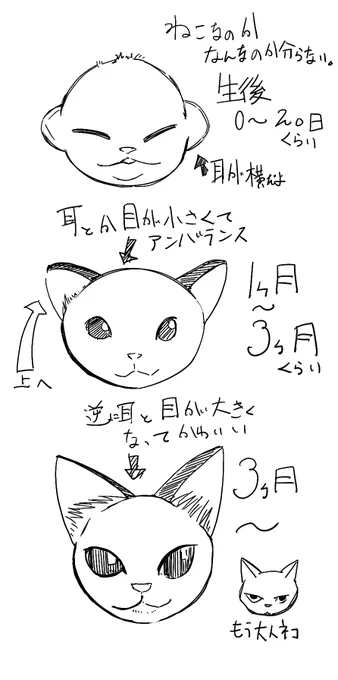 ねこなのか
なんなのか分らない。
生後
0〜20日
くらい
耳が横だよ
耳とか目が小さくて
アンバランス
1ヶ月
〜
3ヶ月
くらい
上へ
逆に耳と目が大きく
なってかわいい
3ヶ月
〜
もう大人ネコ